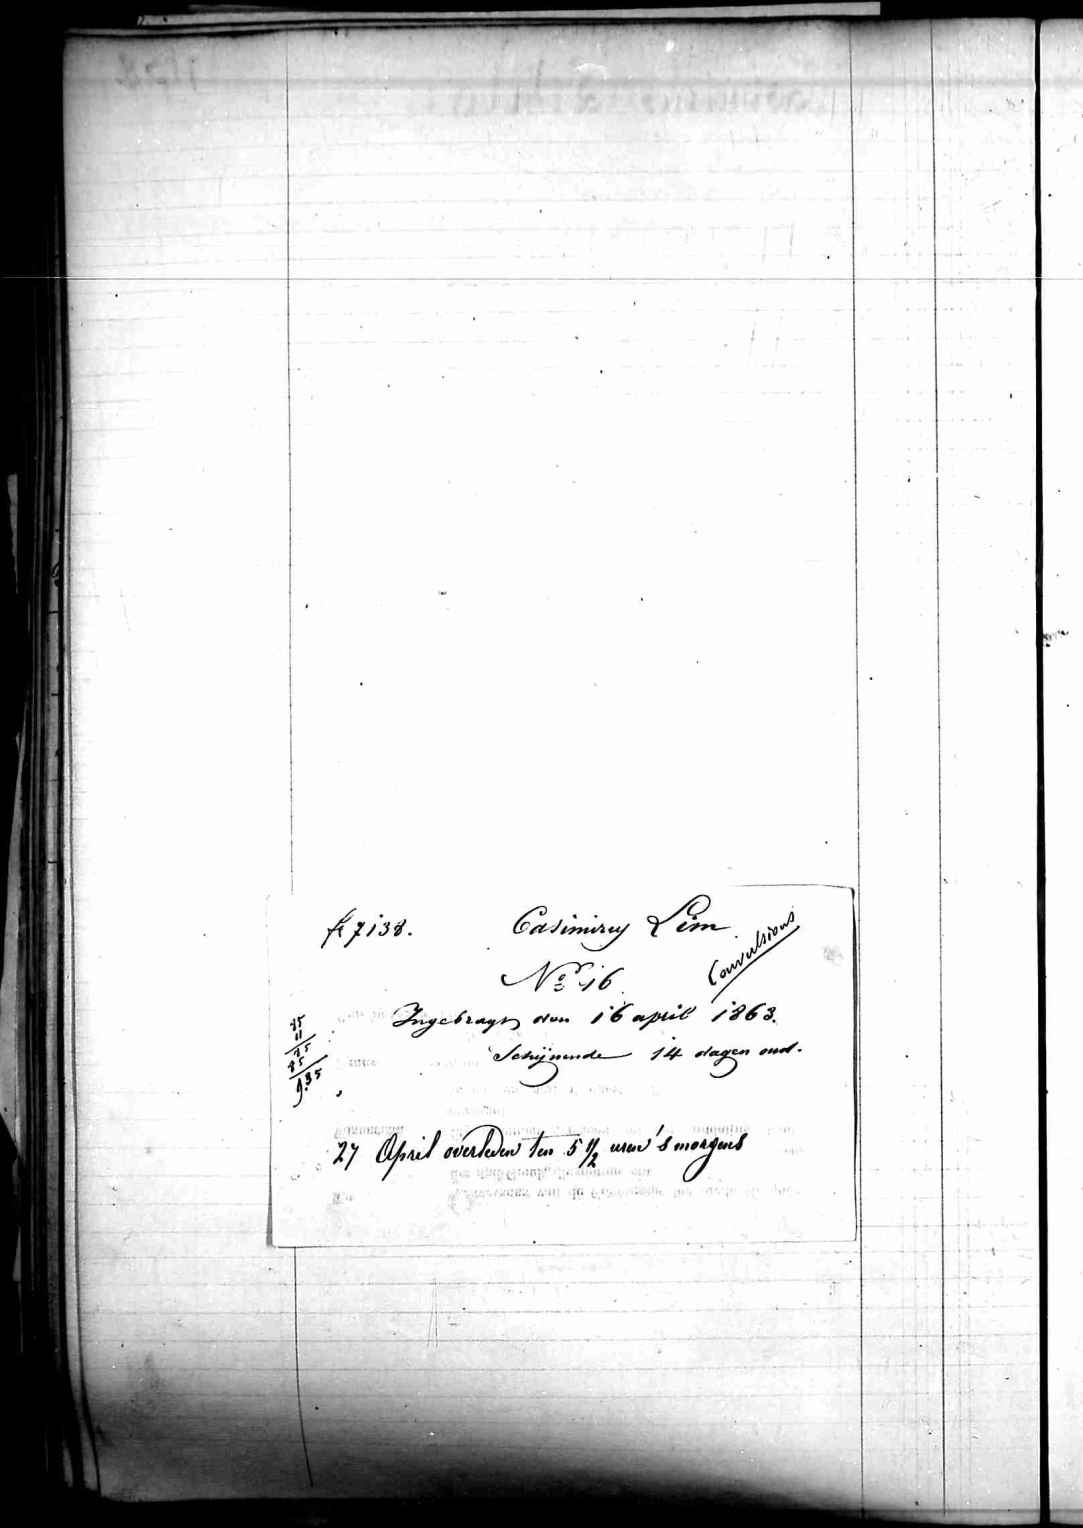 fo 7138.
Casimirus Lim
Convulsions
No 16
Ingebragt den 16 april 1863.
Schijnende 14 dagen oud.
27 April overleden ten 5 1/2 uren 's morgens